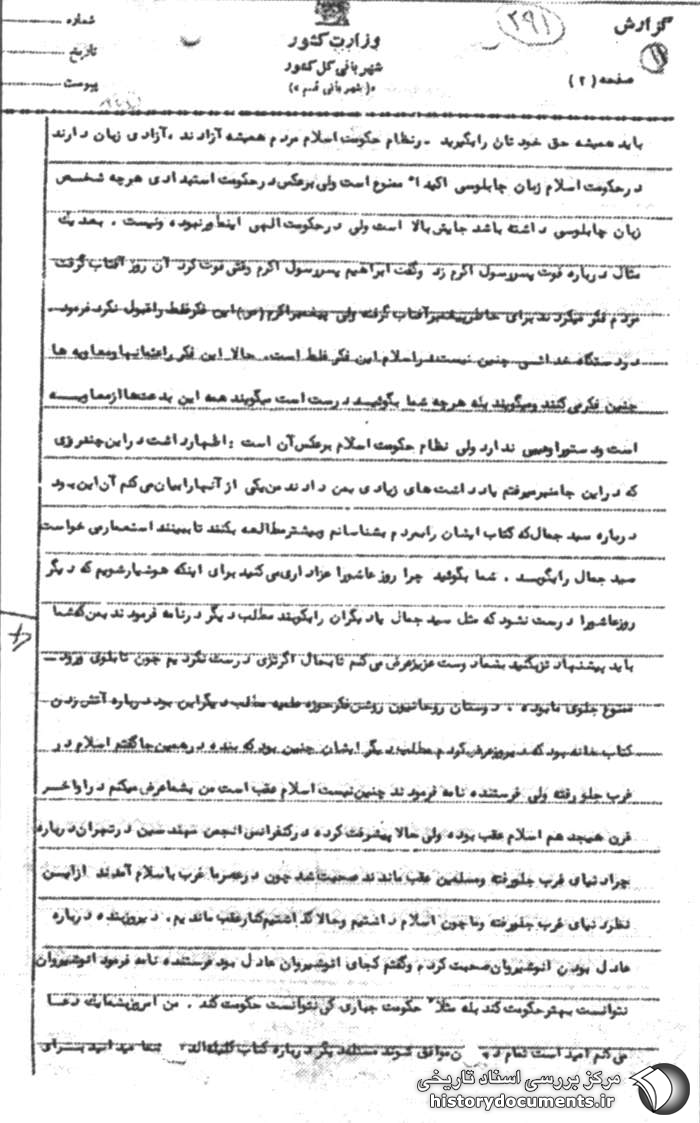 گزارش
۲۹۱
وزارت کشور
شهربانی کل کشور
«(شهربانی قم)»
شماره
تاریخ
پیوست
صفحه (۲)
باید همیشه حق خودتان رابگیرید . رنظام حکومت اسلام مردم همیشه آزادند ،آزادی زبان دارند
درحکومت اسلام زبان چاپلوسی اکیدا" ممنوع است ولی برعکس درحکومت استبدادی هرچه شخصی
زبان چاپلوسی داشته باشد جایش بالا است ولی درحکومت الهی اینطورنبوده ونیست . بعدیک
مثال درباره فوت پسررسول اکرم زد وگفت ابراهیم پسررسول اکرم وقتی فوت کرد آن روز آفتاب گرفت
مردم فکر میکردند برای خاطرپیغمبرآفتاب گرفته ولی پیغمبراکرم (ص) این فکرغلط راقبول نکرد فرمود
دردستگاه خدائی چنین نیست دراسلام این فکرغلط است، حالا این فکر راعثمانها ومعاویه ها
چنین فکرمی کنند ومیگویند بله هرچه شما بگوئید درست است میگویند همه این بدعتها ازمعاویه
است ودستورا ودینی ندارد ولی نظام حکومت اسلام برعکس آن است : اظهارداشت دراین چندروزی
که دراین جامنبرمیرفتم یادداشت های زیادی بمن دادند من یکی از آنهارابیان می کنم آن این بود
درباره سید جمال که کتاب ایشان رابمردم بشناسانم وبیشترمطالعه بکنند تاببینند استعمارمی خواست
سید جمال رابکوبد . شما بگوئید چرا روز عاشورا عزاداری می کنید برای اینکه هوشیارشویم که دیگر
روزعاشورا درست نشود که مثل سید جمال یادیگران رابکوبند مطلب دیگر درنامه فرمودند بمن که شما
باید پیشنهاد تزبکنید بشما دوست عزیزعرض می کنم تابحال اگرتزی درست نکردیم چون تابلوی ورود
ممنوع جلوی مابوده . دوستان روحانیون روشن فکرحوزه علمیه مطلب دیگراین بود درباره آتش زدن
کتاب خانه بود که دیروزعرض کردم مطلب دیگر ایشان چنین بود که بنده درهمین جاگفتم اسلام در
غرب جلو رفته ولی فرستنده نامه فرمودند چنین نیست اسلام عقب است من بشماعرض میکنم دراواخر
قرن هیجدهم اسلام عقب بوده ولی حالا پیشرفت کرده درکنفرانس انجمن مهندسین درتهران درباره
چرادنیای غرب جلورفته ومسلمین عقب ماندند صحبت شد چون درعصرما غرب باسلام آمدند ازاین
نظردنیای غرب جلورفته وماچون اسلام داشتیم وحالا گذاشتیم کنارعقب ماندیم. دیروزبنده درباره
عادل بودن انوشیروان صحبت کردم وگفتم کجای انوشیروان عادل بود فرستنده نامه فرمود انوشیروان
نتوانست بهترحکومت کند بله مثلا" حکومت جباری کی نتوانست حکومت کند . من امروزبشماپک دعا
می کنم امید است تمام موافق شوند مسئله دیگر درباره کتاب شما میدانید برای
مرکز بررسی اسناد تاریخی
historydocuments.ir